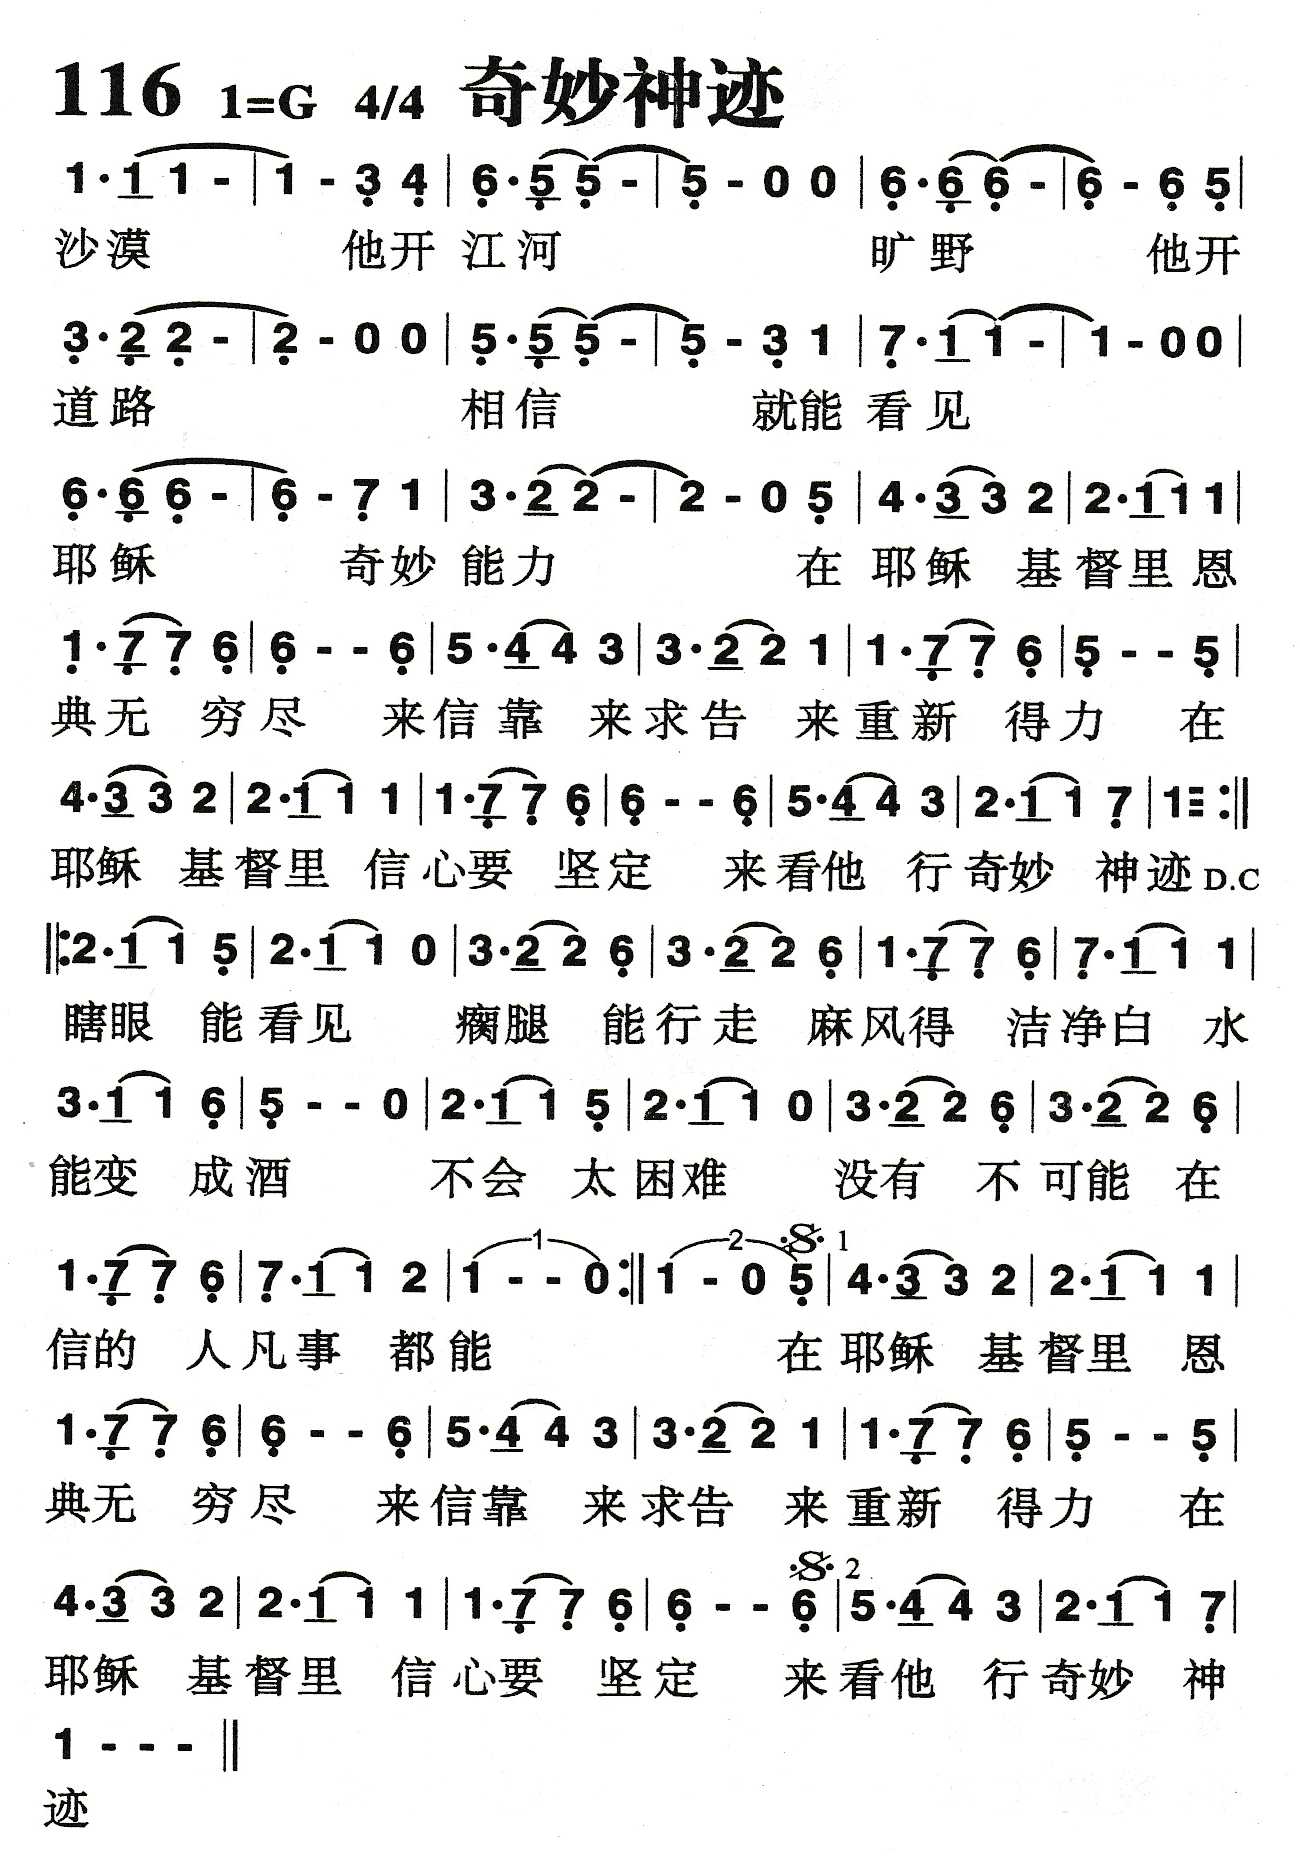 116 1=G 4/4 奇妙神迹
1·1 1 - | 1 - 3 4 | 6·5 5 - | 5 - 0 0 | 6·6 6 - | 6 - 6 5 |
沙漠 他开 江河 旷野 他开
3·2 2 - | 2 - 0 0 | 5·5 5 - | 5 - 3 1 | 7·1 1 - | 1 - 0 0 |
道路 相信 就能 看见
6·6 6 - | 6 - 7 1 | 3·2 2 - | 2 - 0 5 | 4·3 3 2 | 2·1 1 1 |
耶稣 奇妙 能力 在 耶稣 基督里 恩
1·7 7 6 | 6 - - 6 | 5·4 4 3 | 3·2 2 1 | 1·7 7 6 | 5 - - 5 |
典无 穷尽 来信靠 来求告 来重新 得力 在
4·3 3 2 | 2·1 1 1 | 1·7 7 6 | 6 - - 6 | 5·4 4 3 | 2·1 1 7 | 1 ☰ :‖
耶稣 基督里 信心要 坚定 来看他 行奇妙 神迹 D.C
‖: 2·1 1 5 | 2·1 1 0 | 3·2 2 6 | 3·2 2 6 | 1·7 7 6 | 7·1 1 1 |
瞎眼 能看见 瘸腿 能行走 麻风得 洁净白 水
3·1 1 6 | 5 - - 0 | 2·1 1 5 | 2·1 1 0 | 3·2 2 6 | 3·2 2 6 |
能变 成酒 不会 太困难 没有 不可能 在
1·7 7 6 | 7·1 1 2 | 1 - - 0 :‖ 1 - 0 5 | 4·3 3 2 | 2·1 1 1 |
1 2 𝄋 1
信的 人凡事 都能 在耶稣 基督里 恩
1·7 7 6 | 6 - - 6 | 5·4 4 3 | 3·2 2 1 | 1·7 7 6 | 5 - - 5 |
典无 穷尽 来信靠 来求告 来重新 得力 在
𝄋 2
4·3 3 2 | 2·1 1 1 | 1·7 7 6 | 6 - - 6 | 5·4 4 3 | 2·1 1 7 |
耶稣 基督里 信心要 坚定 来看他 行奇妙 神
1 - - - ‖
迹